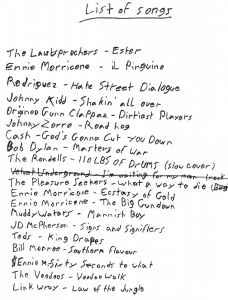 List of songs
The Laubprochers - Ester
Ennio Morricone - il Pinguino
Rodriguez - Hate Street Dialogue
Johnny Kidd - Shakin' all over
Gunn Clapfaz - Dirtiast Players
Johnny Zorro - Road hog
Cash - God's Gonna Cut You Down
Bob Dylan - Masters of War
The Rondells - 110 LBS OF DRUMS (slow cover)
Velvet Underground - I'm waiting for my man
The Pleasure Seekers - what a way to die
Ennio Morricone - Ecstasy of Gold
Ennio Morricone - The Big Gundown
Muddy Waters - Mannish Boy
JD McPherson - Signs and Signifiers
Teds - King Drapes
Bill Monroe - Southern Flavour
Ennio M - Sixty Seconds to what
The Voodoos - Voodoo Walk
Link Wray - Law of the Jungle